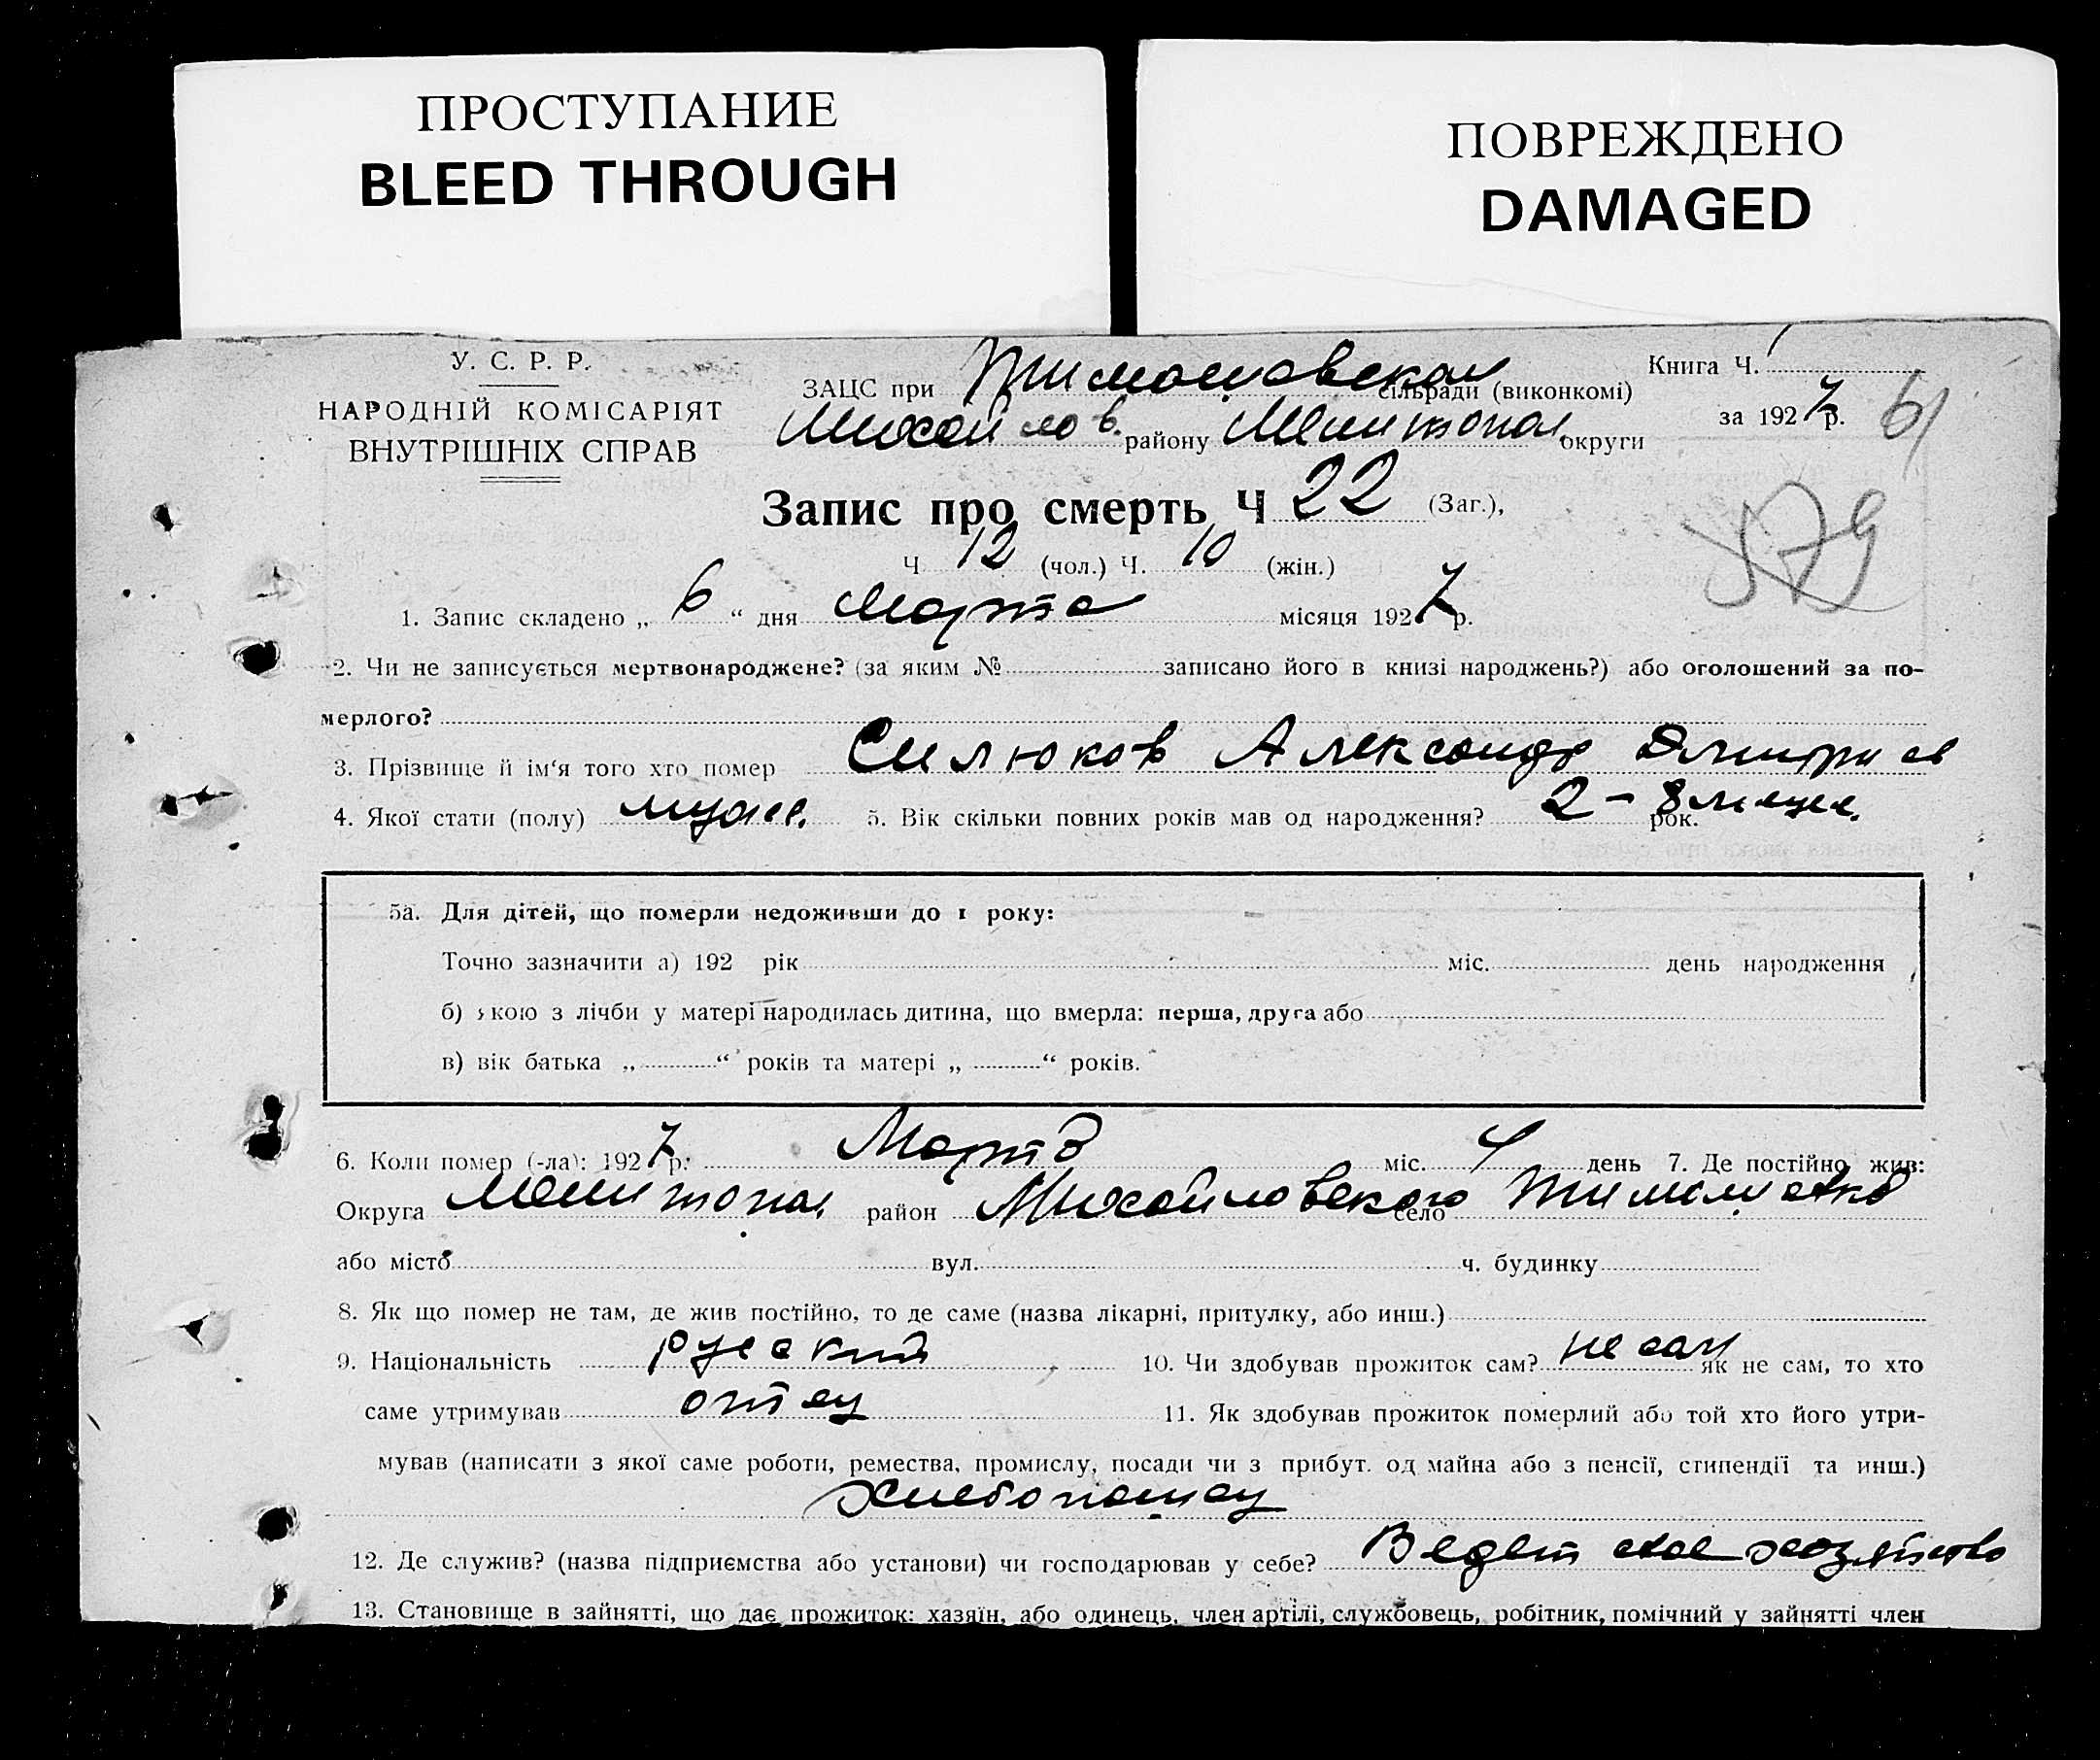 ПРОСТУПАНИЕ
BLEED THROUGH
ПОВРЕЖДЕНО
DAMAGED
У. С. Р. Р.
НАРОДНІЙ КОМІСАРІЯТ
ВНУТРІШНІХ СПРАВ
ЗАЦС при Тимошовская сільради (виконкомі)
Михайлов. району Мелитопол. округи
Книга Ч. 1
за 1927 р. 61
Запис про смерть Ч 22 (Заг.),
Ч 12 (чол.) Ч. 10 (жін.)
579
1. Запис складено „ 6 “ дня Марта місяця 1927 р.
2. Чи не записується мертвонароджене? (за яким № записано його в книзі народжень?) або оголошений за по-
мерлого?
3. Прізвище й ім‘я того хто помер Силюков Александр Дмитриев
4. Якої стати (полу) мужс. 5. Вік скільки повних років мав од народження? 2 - 8 месяце. рок.
5а. Для дітей, що померли недоживши до 1 року:
Точно зазначити а) 192 рік міс. день народження
б) якою з лічби у матері народилась дитина, що вмерла: перша, друга або
в) вік батька „ “ років та матері „ “ років.
6. Коли помер (-ла): 1927 р. Марта міс. 4 день 7. Де постійно жив:
Округа Мелитопол. район Михайловского село Тимошовка
або місто вул. ч. будинку
8. Як що помер не там, де жив постійно, то де саме (назва лікарні, притулку, або инш.)
9. Національність русский 10. Чи здобував прожиток сам? не сам як не сам, то хто
саме утримував отец 11. Як здобував прожиток померлий або той хто його утри-
мував (написати з якої саме роботи, ремества, промислу, посади чи з прибут. од майна або з пенсії, стипендії та инш.)
Хлебопашец
12. Де служив? (назва підприємства або установи) чи господарював у себе? Ведет свое хозяйство
13. Становище в зайнятті, що дає прожиток: хазяїн, або одинець, член артілі, службовець, робітник, помічний у зайнятті член